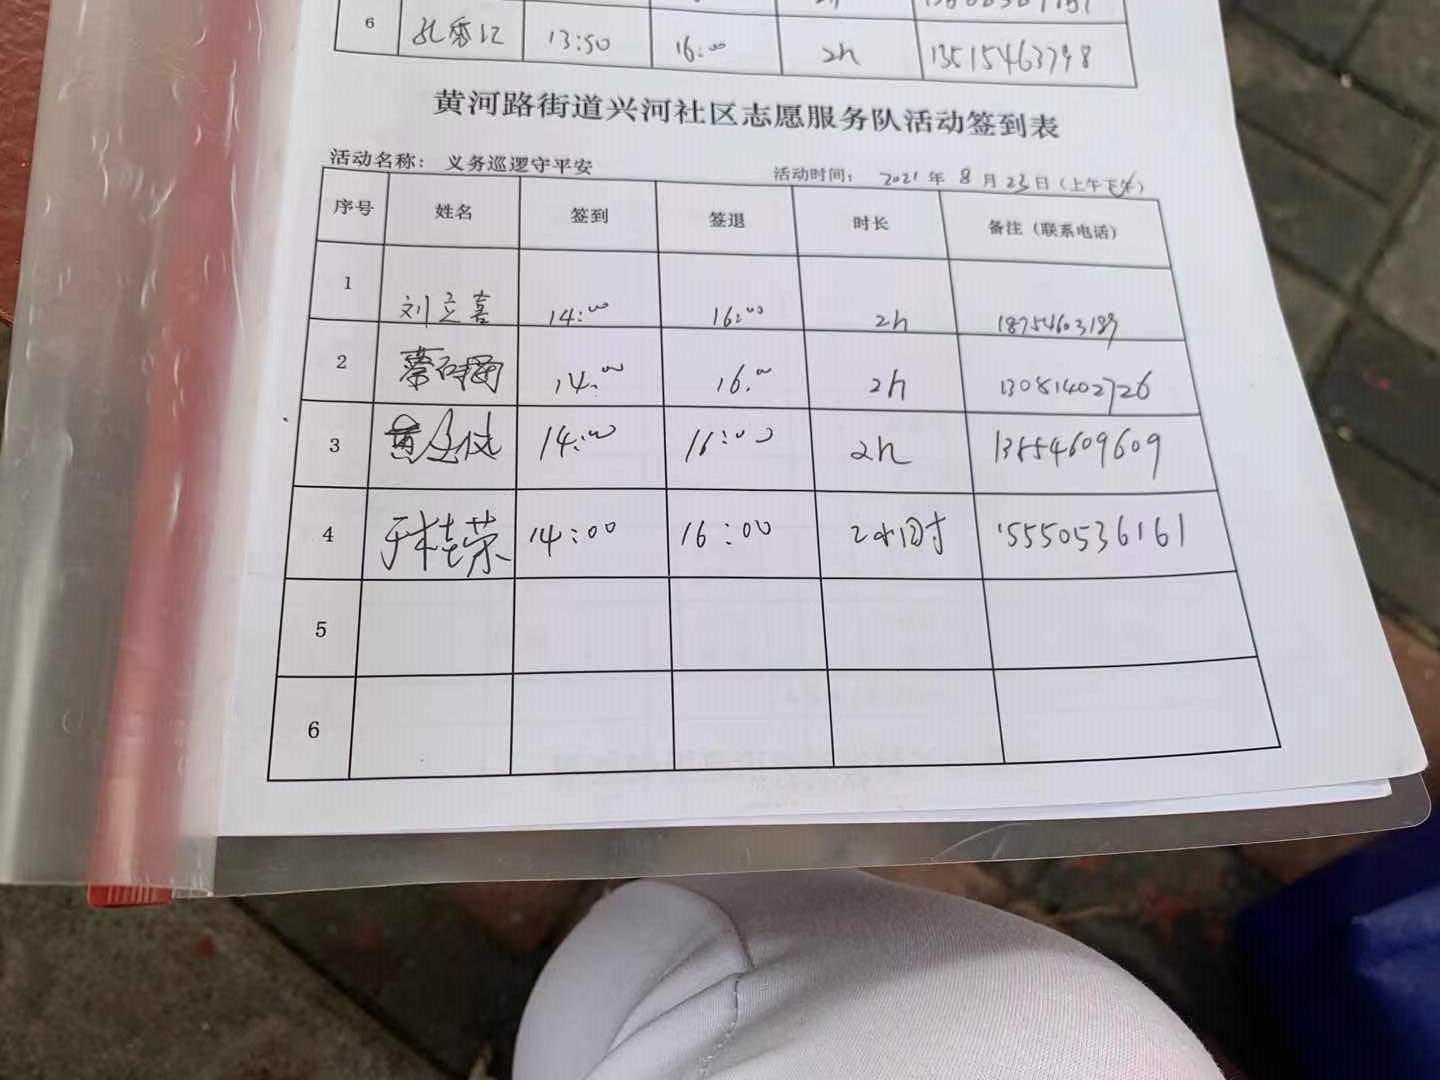 6 孔秀江 13:50 16:00 2h 13515463798
黄河路街道兴河社区志愿服务队活动签到表
活动名称： 义务巡逻守平安 活动时间： 2021 年 8 月 23 日（上午下午）
序号 姓名 签到 签退 时长 备注（联系电话）
1 刘立喜 14:00 16:00 2h 18754603189
2 14:00 16:00 2h 13081402726
3 14:00 16:00 2h 13554609609
4 于桂荣 14:00 16:00 2小时 15550536161
5
6